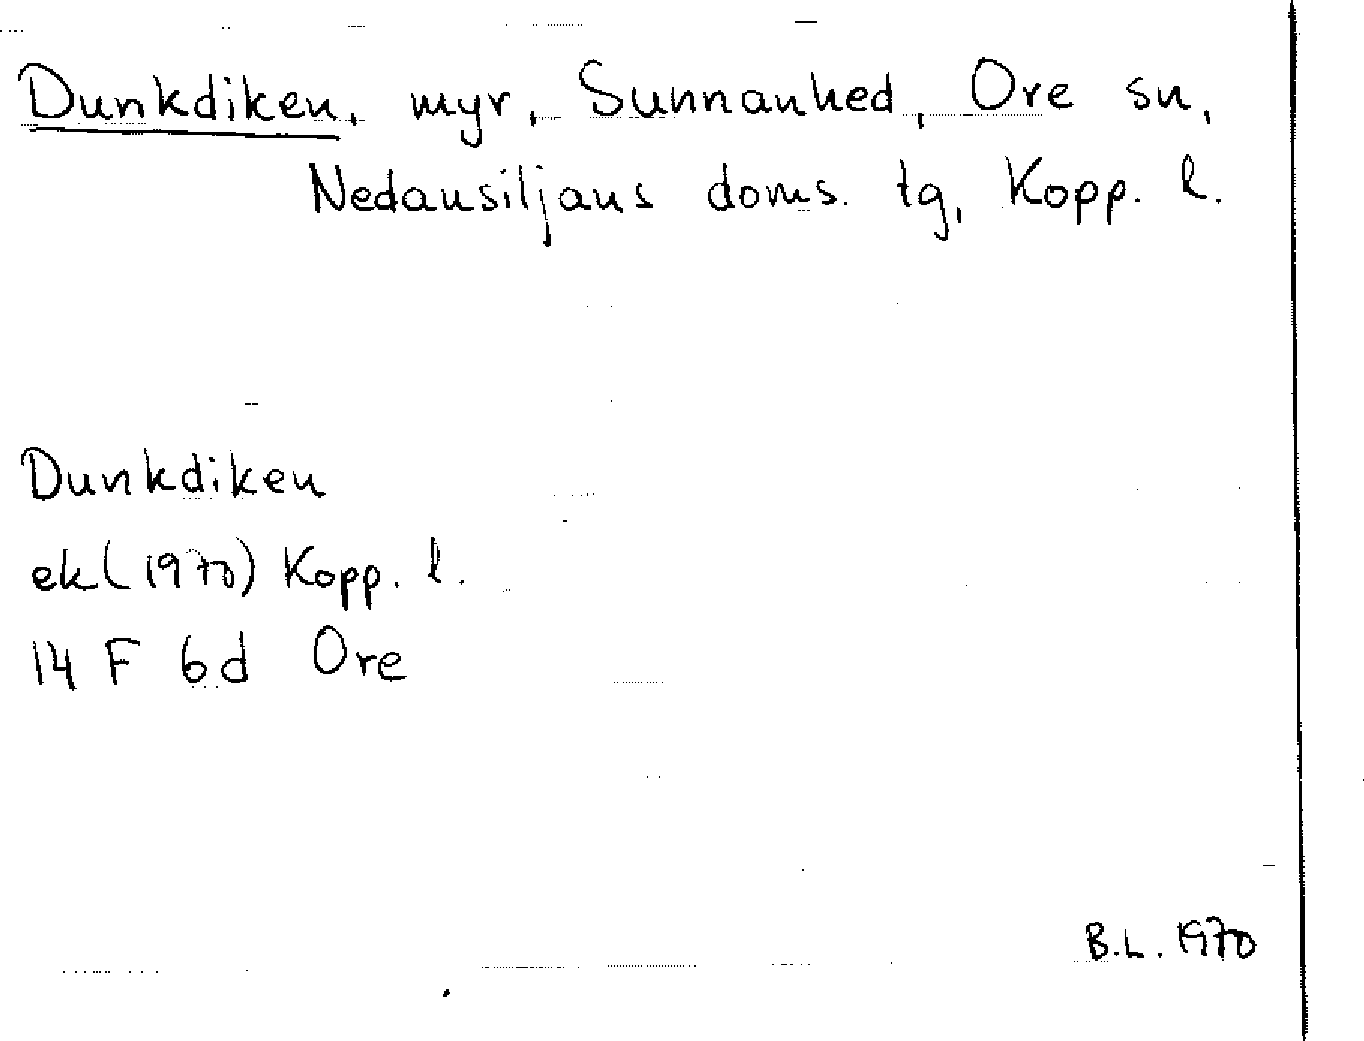 Dunkdiken, myr, Sunnanhed, Ore sn,
Nedansiljans doms. tg, Kopp. l.
Dunkdiken
ek (1970) Kopp. l.
14 F 6d Ore
B.L. 1970